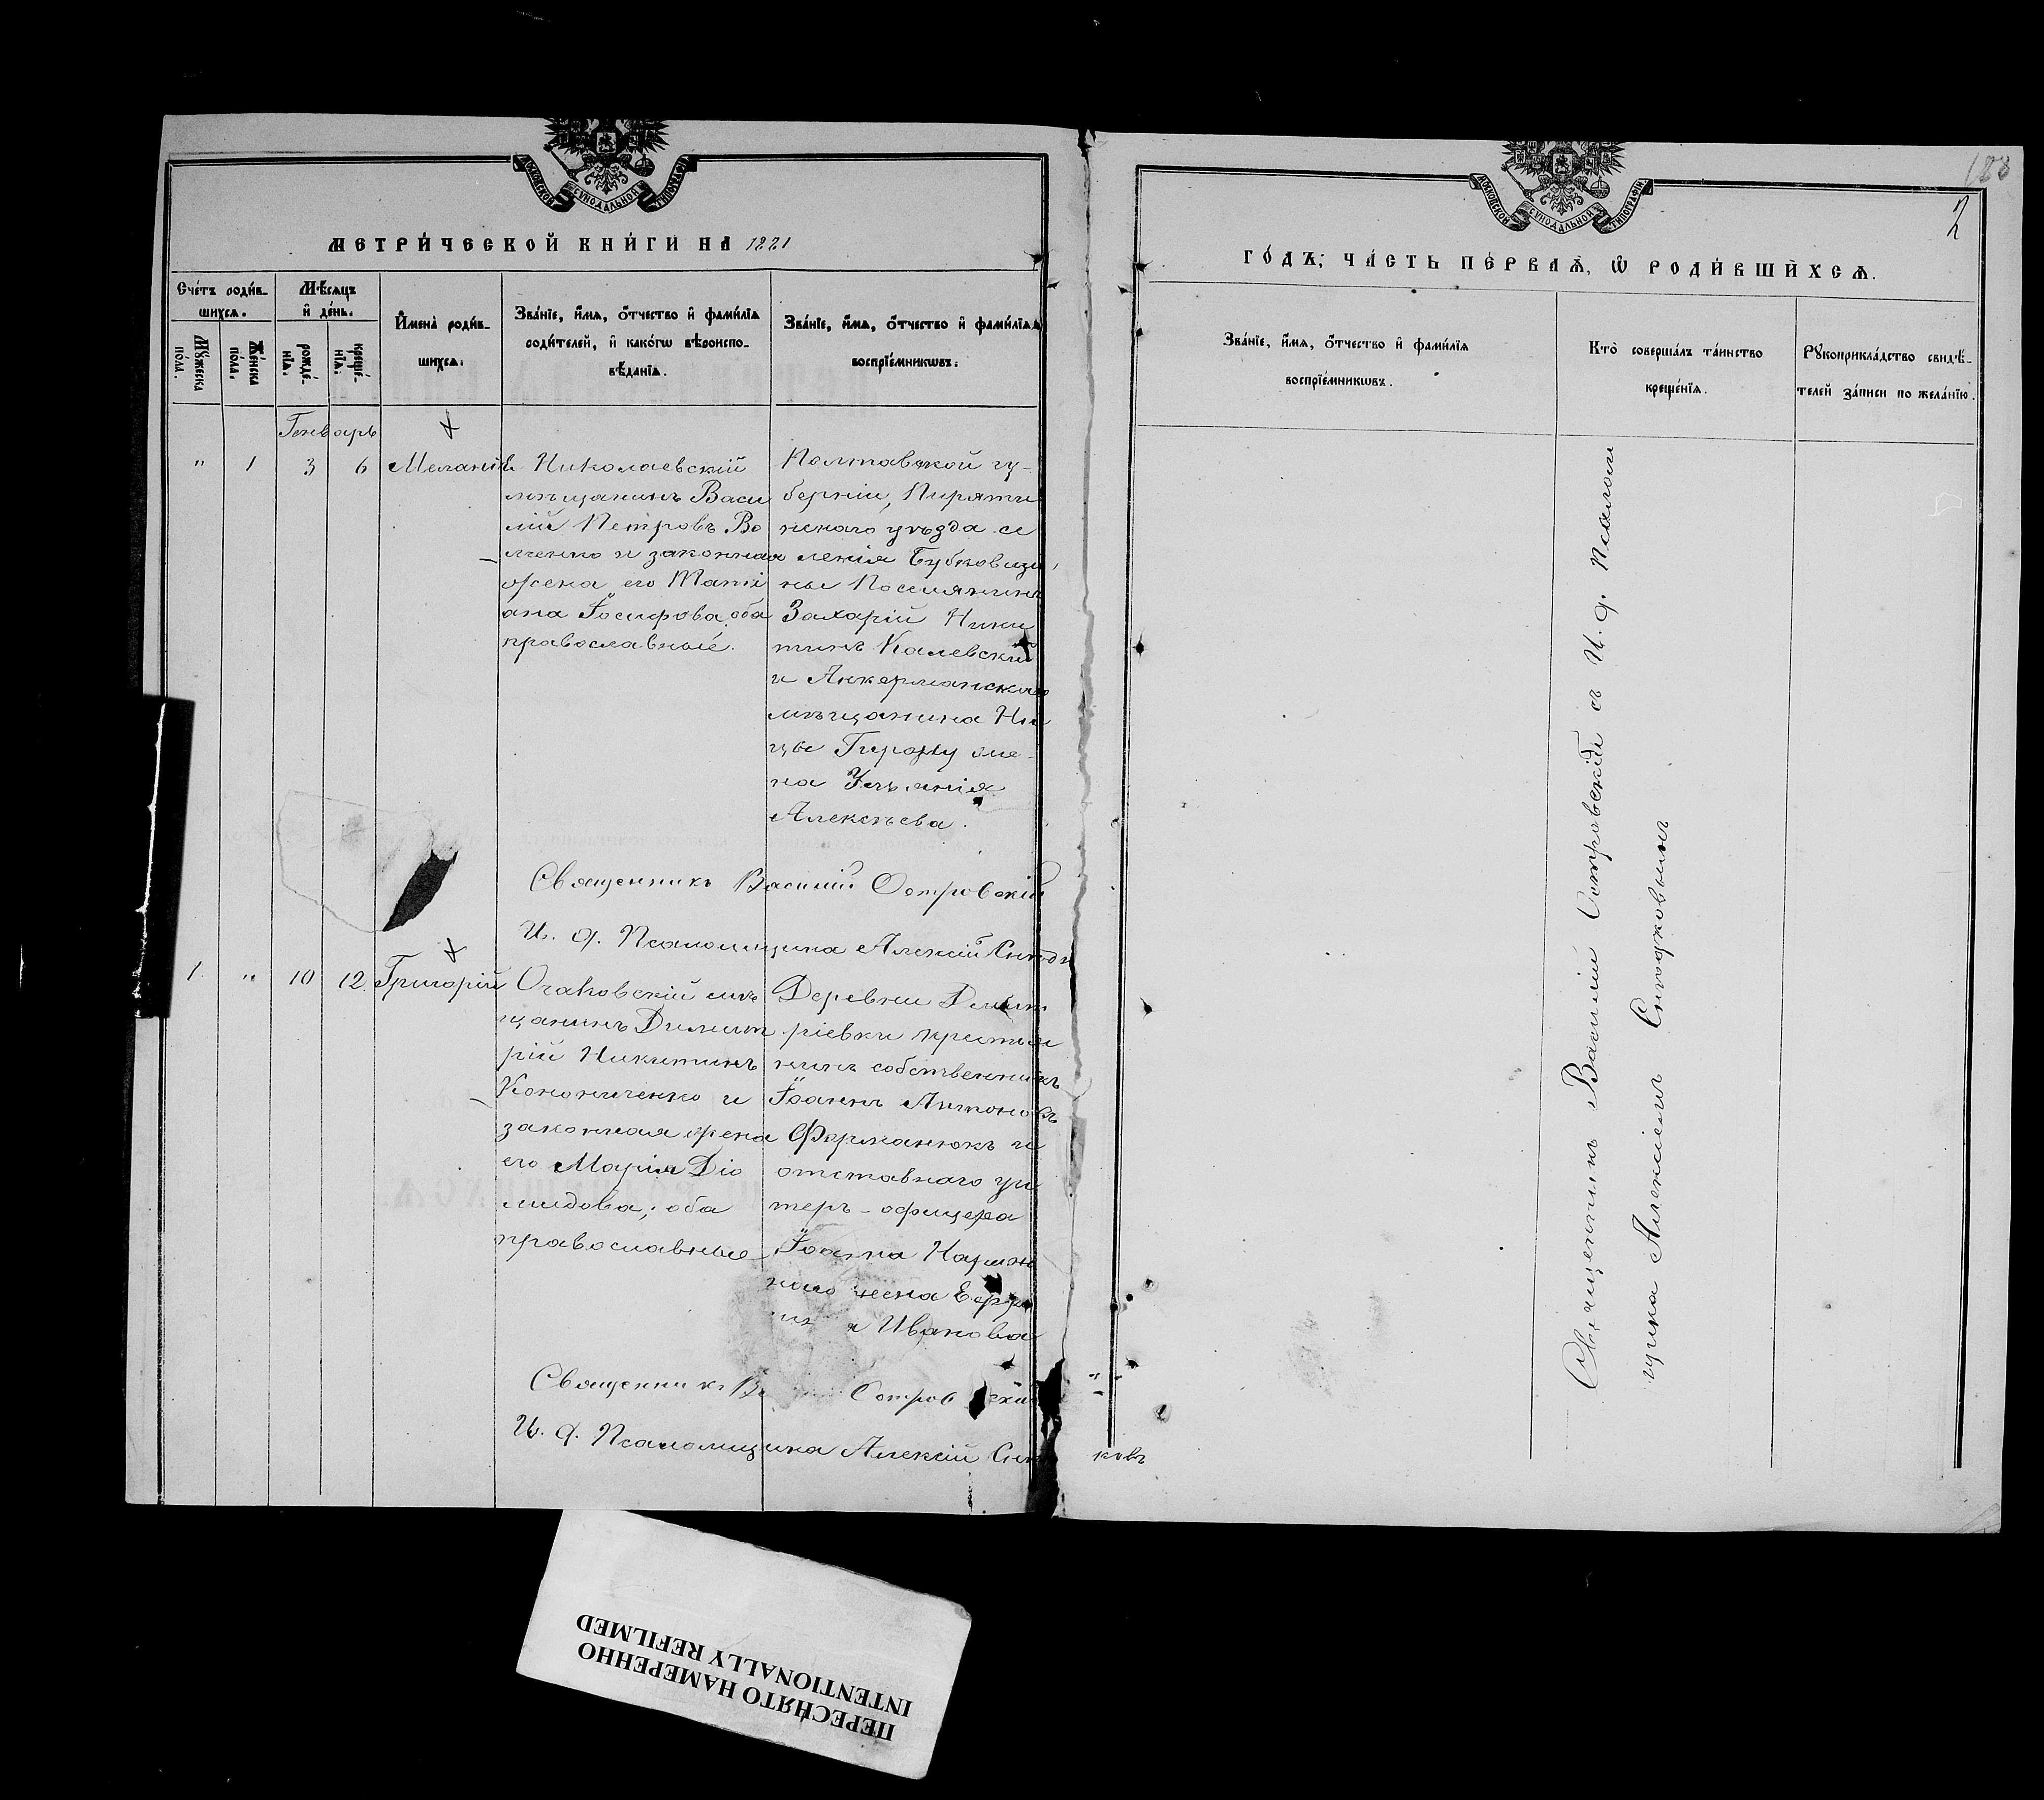 МОСКОВСКОЙ СУНОДАЛЬНОЙ ТИПОГРАФІИ
МЕТРИ́ЧЕСКОЙ КНИ́ГИ НА 1881
Сче́тъ роди́в-
шихсѧ.
Мѣ́сѧцъ
и҆ де́нь.
Мꙋ́жеска
по́ла.
Же́нска
по́ла.
рожде́-
нїѧ.
креще́-
нїѧ.
И҆мена̀ роди́в-
шихсѧ.
Зва́нїе, и҆́мѧ, ѻ҆́тчество и҆ фами́лїѧ
роди́телей, и҆ како́гѡ вѣроиспо-
вѣ́данїѧ.
Зва́нїе, и҆́мѧ, ѻ҆́тчество и҆ фами́лїѧ
воспрїе́мникѡвъ.
Генварь
" 1 3 6 Меланія
Николаевскій
мѣщанинъ Васи
лій Петровъ Во
ленко и законная
жена его Тати
ана Іосифова, оба
православные.
Полтавской гу-
берніи, Пиряти
нскаго уѣзда се
ленія Бубковщи
ны Поселянинъ
Захарій Ники
тинъ Калевскій
и Аккерманскаго
мѣщанина
жена
Алексѣева.
Священникъ Василій Островскій
И. д. Псаломщика Алексій
1. " 10 12. Григорій
Очаковскій мѣ
щанинъ Димит
рій Никитинъ
Кононченко и
законная жена
его Марія Діо
мидова; оба
православные
Деревни Дмит
ріевки крестья
нинъ собственникъ
Іоаннъ Антоновъ
Форманюкъ и
отставнаго ун
теръ-офицера
Іоанна
жена
Иванова
Священникъ Островскій
И. д. Псаломщика Алексій
ковъ
188
2
МОСКОВСКОЙ СУНОДАЛЬНОЙ ТИПОГРАФІИ
ГО́ДЪ; ЧА́СТЬ ПЕ́РВАѦ, Ѡ҆ РОДИ́ВШИХСѦ.
Зва́нїе, и҆́мѧ, ѻ҆́тчество и҆ фами́лїѧ
воспрїе́мникѡвъ.
Кто̀ соверша́лъ та́инство
креще́нїѧ.
Рꙋкоприкла́дство свидѣ́-
телей за́писи по жела́нїю.
Священникъ Василій Островскій съ И. д. Псалом
щика Алексіемъ
ПЕРЕСНЯТО НАМЕРЕННО
INTENTIONALLY REFILMED